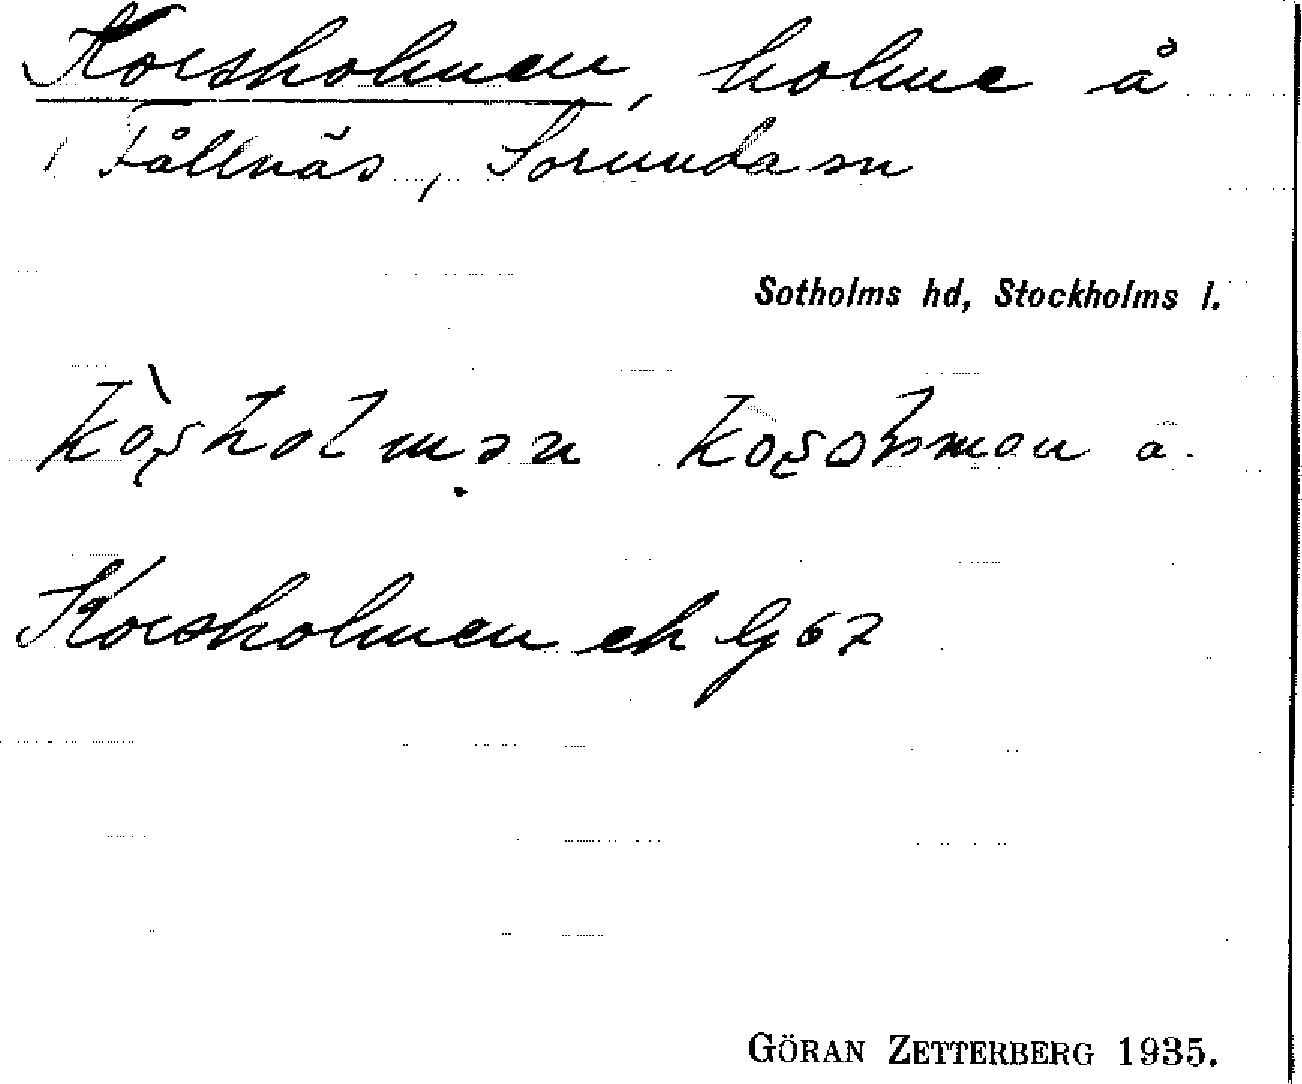 Korsholmen, holme å
Fållnäs, Sorunda sn
Sotholms hd, Stockholms l.
Korsholmen ek Lg 67
GÖRAN ZETTERBERG 1935.